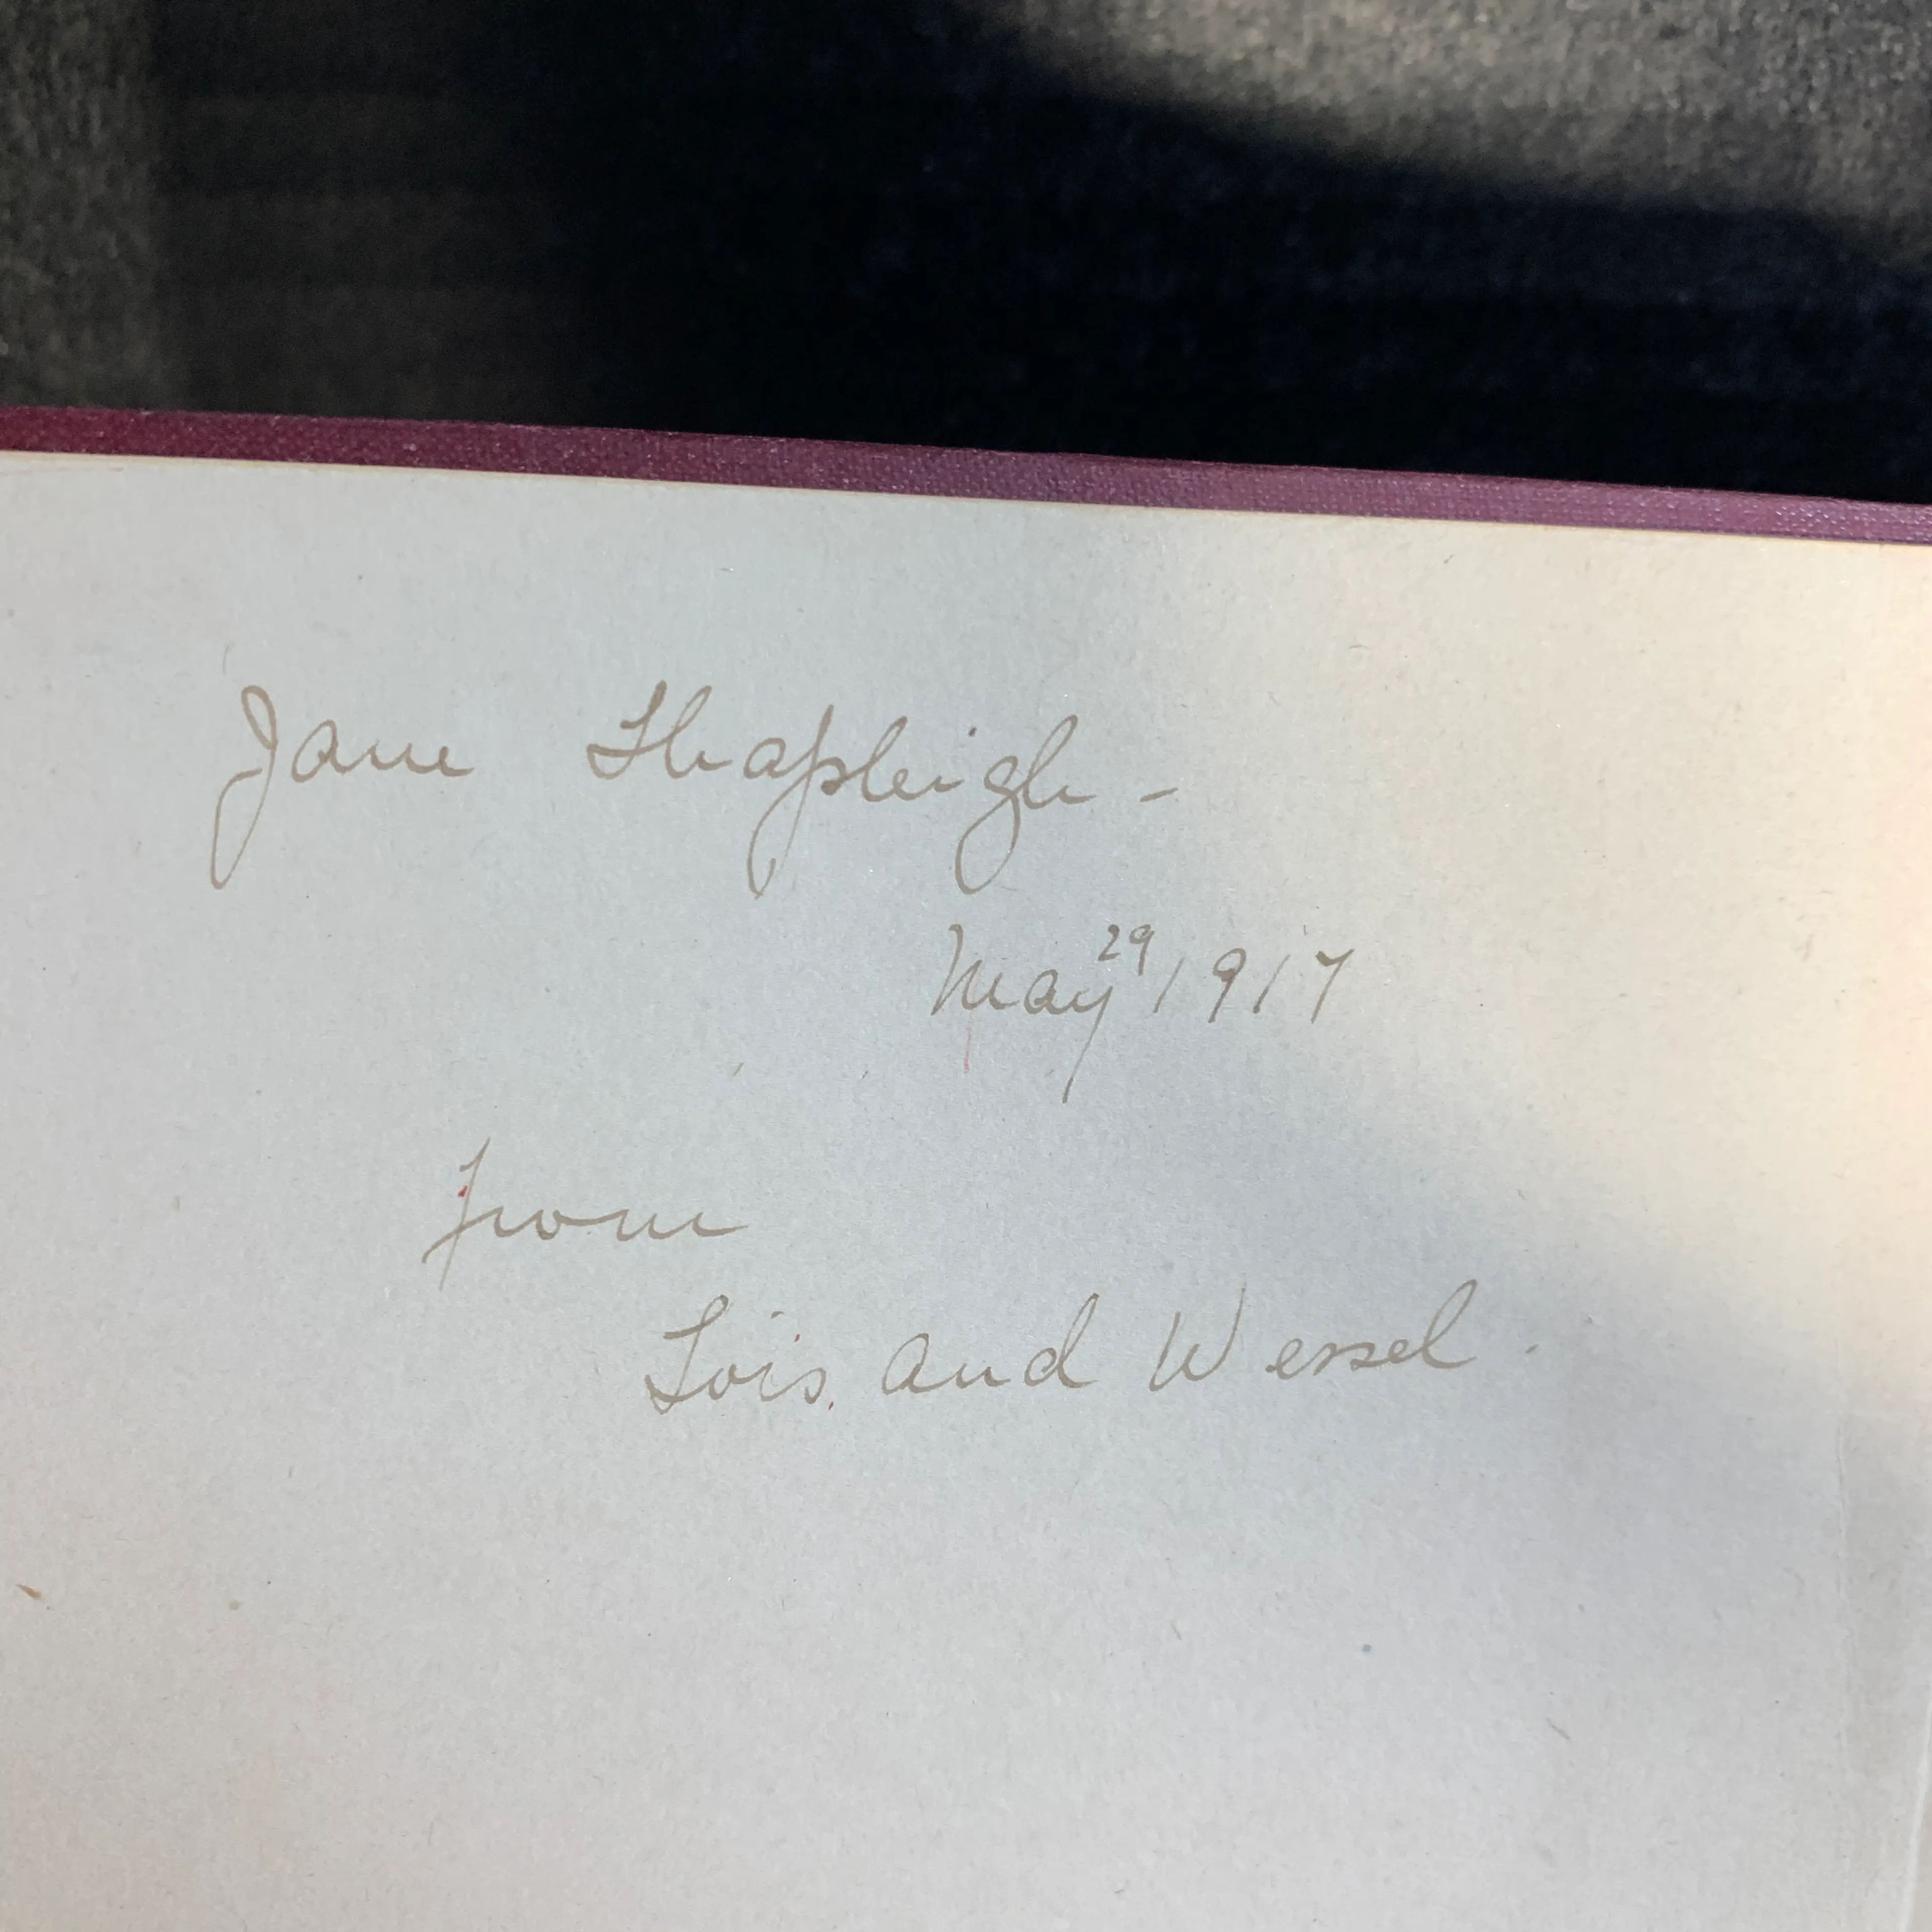 Jane Shapleigh -
May 29 1917
from
Lois and Wessel.